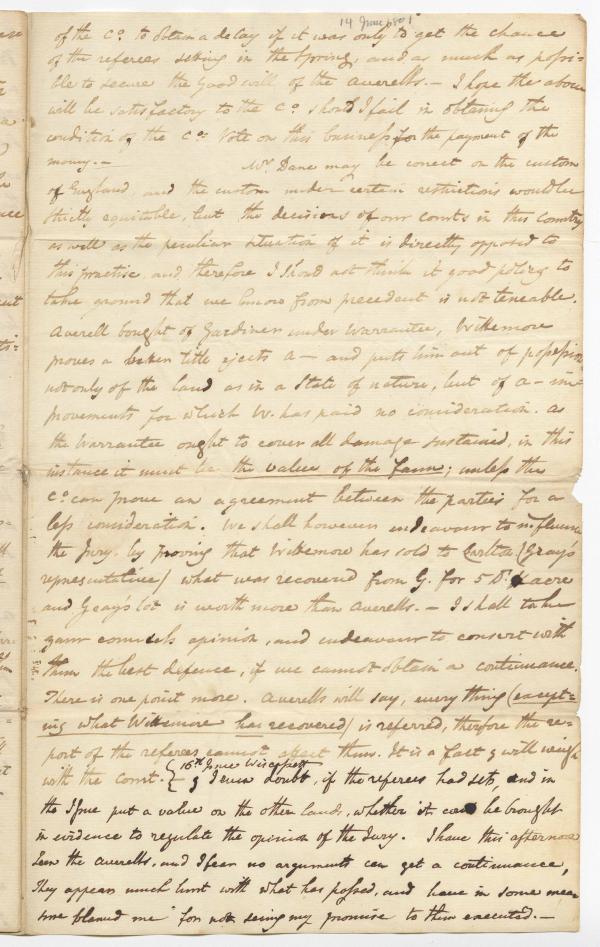 14 June 1801
of the Co. to obtain a delay if it was only to get the chance
of the referees setting in the Spring, and as much as possi-
ble to secure the good will of the Averells. — I hope the above
will be satisfactory to the Co. should I fail in obtaining the
condition of the Co. Vote on this business for the payment of the
money. — Mr. Dane may be correct on the custom
of England, and the custom under certain restrictions would be
strictly equitable, but the decisions of our courts in this Country
as well as the peculiar situation of it is directly opposed to
this practise, and therefore I should not think it good policy to
take ground that we know from precedent is not teneable.
Averell bought of Gardiner under Warrantee, Wittemore
proves a better title ejects A— and puts him out of possession
not only of the land as in a State of nature, but of A— im-
provements for which W. has paid no consideration. as
the Warrantee ought to cover all damage sustained, in this
instance it must be the value of the Farm; unless the
Co. can prove an agreement between the parties for a
less consideration. We shall however endeavour to influence
the Jury by proving that Wittemore has sold to (Gray's
representative) what was recovered from G. for 5 D. acre
and Gray's lot is worth more than Averells. — I shall take
your councils opinion, and endeavour to consert with
them the best defence, if we cannot obtain a continuance.
There is one point more. Averells will say, every thing (except-
ing what Wittemore has recovered) is referred, therefore the re-
port of the referees cannot affect them. It is a fact & will weigh
with the Court. { 16th June Wiscassett
& I even doubt, if the referees had sets, and in
the Issue put a value on the other lands, whether it could be brought
in evidence to regulate the opinion of the Jury. I have this afternoon
seen the Averells, and I fear no arguments can get a continuance,
They appear much hurt with what has passed, and have in some mea-
sure blamed me for not seing my promise to them executed. —